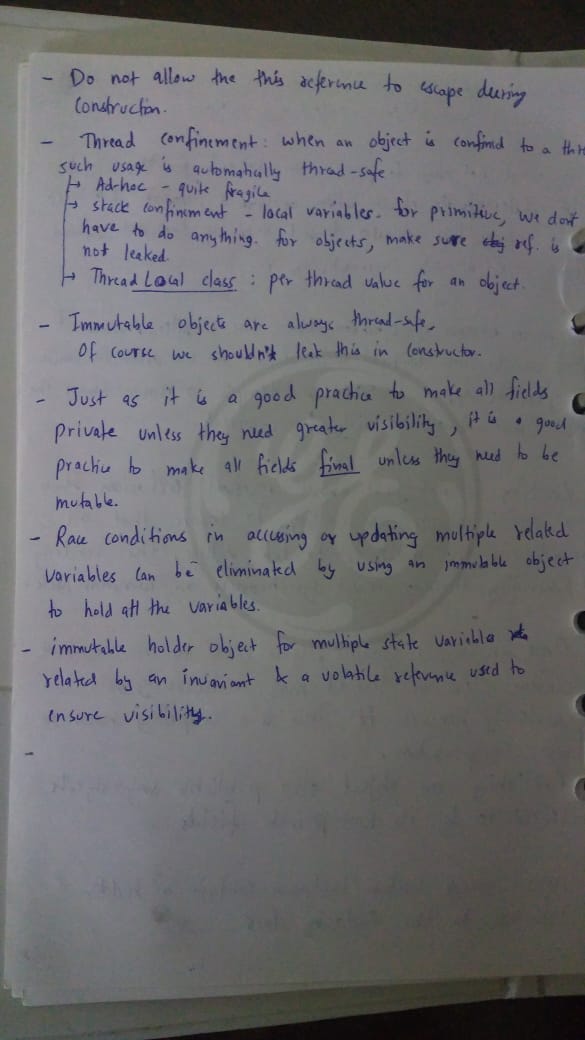 - Do not allow the this reference to escape during
Construction.
- Thread confinement : when an object is confined to a thre
such usage is automatically thread-safe
→ Ad-hoc - quite fragile
→ stack confinement - local variables. for primitive, we dont
have to do anything. for objects, make sure obj ref. is
not leaked.
→ Thread Local class : per thread value for an object.
- Immutable objects are always thread-safe.
Of course we shouldn't leak this in constructor.
- Just as it is a good practice to make all fields
private unless they need greater visibility, it is a good
practice to make all fields final unless they need to be
mutable.
- Race conditions in accessing or updating multiple related
variables can be eliminated by using an immutable object
to hold all the variables.
- immutable holder object for multiple state variables
related by an invariant & a volatile reference used to
ensure visibility.
-